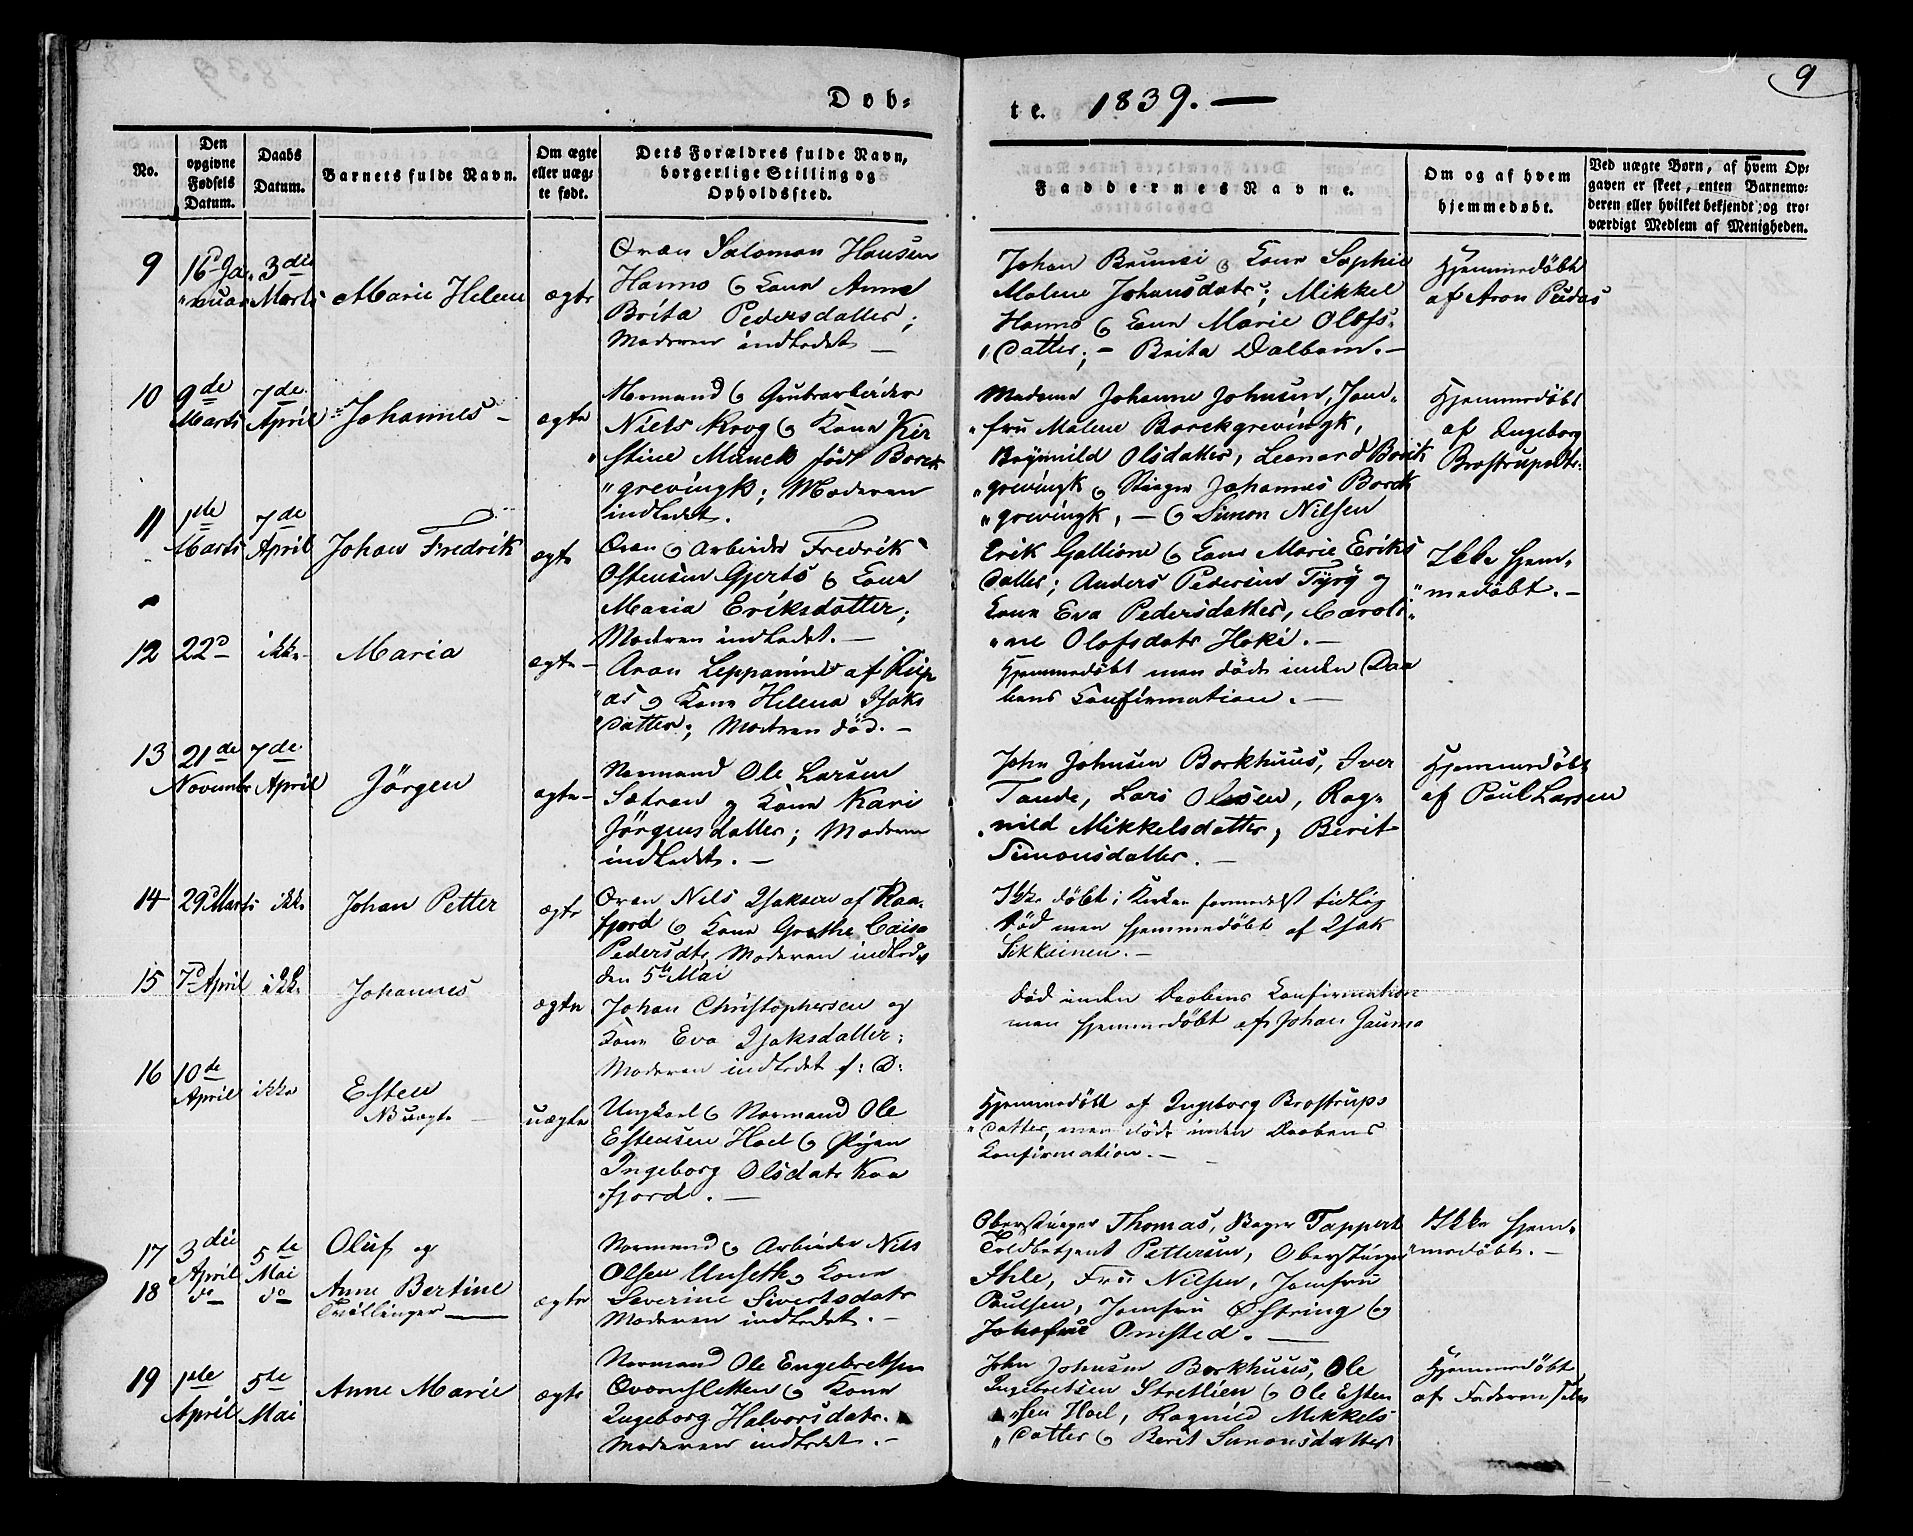 9
Døb-
te. 1839. —
No.
Den
opgivne
Fødsels
Datum.
Daabs
Datum.
Barnets fulde Navn.
Om ægte
eller uæg-
te født.
Dets Forældres fulde Navn,
borgerlige Stilling og
Opholdssted.
Faddernes Navne.
Om og af hvem
hjemmedøbt.
Ved uægte Børn, af hvem Op-
gaven er skeet, enten Barnemo-
deren eller hvilket bekjendt og tro-
værdigt Medlem af Menigheden.
9
16d Ja-
nuar
3die
Marts
Marie Helene
ægte
Qvæn Salomon Hansen
Hanno og Kone Anna
Brita Pedersdatter;
Moderen indledet —
Johan Brunsi og Kone Sophie
Malene Johansdatr; Mikkel
Hanno og Kone Marie Olofs-
datter; — Brita Dalbom. —
Hjemmedøbt
af Aron Pudas
10
9de
Marts
7de
April
Johannes —
ægte
Normand og Grubearbeider
Niels Krog og Kone Kir
stine Munck født Borck
grevingk; Moderen
indledet.
Madame Johanne Johnsen, Jom-
fru Malene Borckgrevingk,
Olsdatter, Leonard Borck
grevingk og Stiger Johannes Borck
grevingk, — og Simon Nilsen
Hjemmedøbt
af Ingeborg
Brostrupsdtr.
11
1ste
Marts
7de
April
Johan Fredrik
ægte
Qvæn og Arbeider Fredrik
Ostensen Gjerts og Kone
Maria Eriksdatter;
Moderen indledet. —
Erik Gallione og Kone Marie Eriks
datter; Anders Pedersen Tyry og
Kone Eva Pedersdatter, Caroli-
ne Olofsdatr Hoki. —
Ikke hjem-
medøbt. —
12
22d
ikke
Maria
ægte —
Aron Leppanine af
as og Kone Helena Isaks
datter; Moderen død. —
Hjemmedøbt men døde inden Daa
bens Confirmation. —
13
21de
Novembr
7de
April
Jörgen
ægte —
Normand Ole Larsen
Sætran og Kone Kari
Jörgensdatter; Moderen
indledet. —
John Johnsen Borkhuus, Iver
Tande, Lars Olesen, Rag-
nild Mikkelsdatter, Berit
Simonsdatter. —
Hjemmedøbt
af Paul Larsen
14
29d Marts
ikke
Johan Petter
ægte
Qvæn Nils Isaksen af Kaa-
fjord og Kone Grethe Caisa
Pedersdtr. Moderen indled
den 5te Mai
Ikke døbt i Kirken formedelst tidlig
død men hjemmedøbt af Isak
Sikkainen. —
15
7d April
ikke
Johannes
ægte
Johan Christophersen og
Kone Eva Isaksdatter;
Moderen indledet s: D:
død inden Daabens Confirmation
men hjemmedøbt af Johan Jauma
16
10de
April
ikke
Esten
NB uægte —
uægte
Ungkarl og Normand Ole
Estensen Hoel og Pigen
Ingeborg Olsdatr Kaa
fjord. —
Hjemmedøbt af Ingeborg Brostrups
datter, men døde inden Daabens
Confirmation. —
17
3die
April
5te
Mai
Oluf og
18
do
do
Anne Bertine
Tvillinger —
ægte
Normand og Arbeider Nils
Olsen Unseth og Kone
Severine Sivertsdatr
Moderen indledet. —
Oberstiger Thomas, Bager Tappert
Toldbetjent Pettersen, Oberstiger
Ihle, Fru Nilsen, Jomfru
Paulsen, Jomfru Østring og
Jomfrue Omsted. —
Ikke hjem-
medøbt. —
19
1ste
April
5te
Mai
Anne Marie
ægte
Normand Ole Engebretsen
Qvornsletten og Kone
Ingeborg Halvorsdatr.
Moderen indledet. —
John Johnsen Borkhuus, Ole
Ingebretsen Strellien og Ole Esten
sen Hoel, Ragnild Mikkels
datter og Berit Simonsdatter
Hjemmedøbt
af Faderen selv